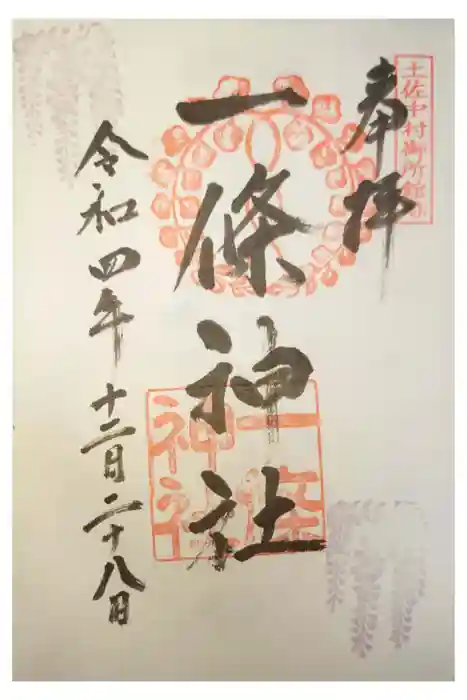 奉拝
土佐中村御所
一條神社
一条神社
令和四年十二月二十八日